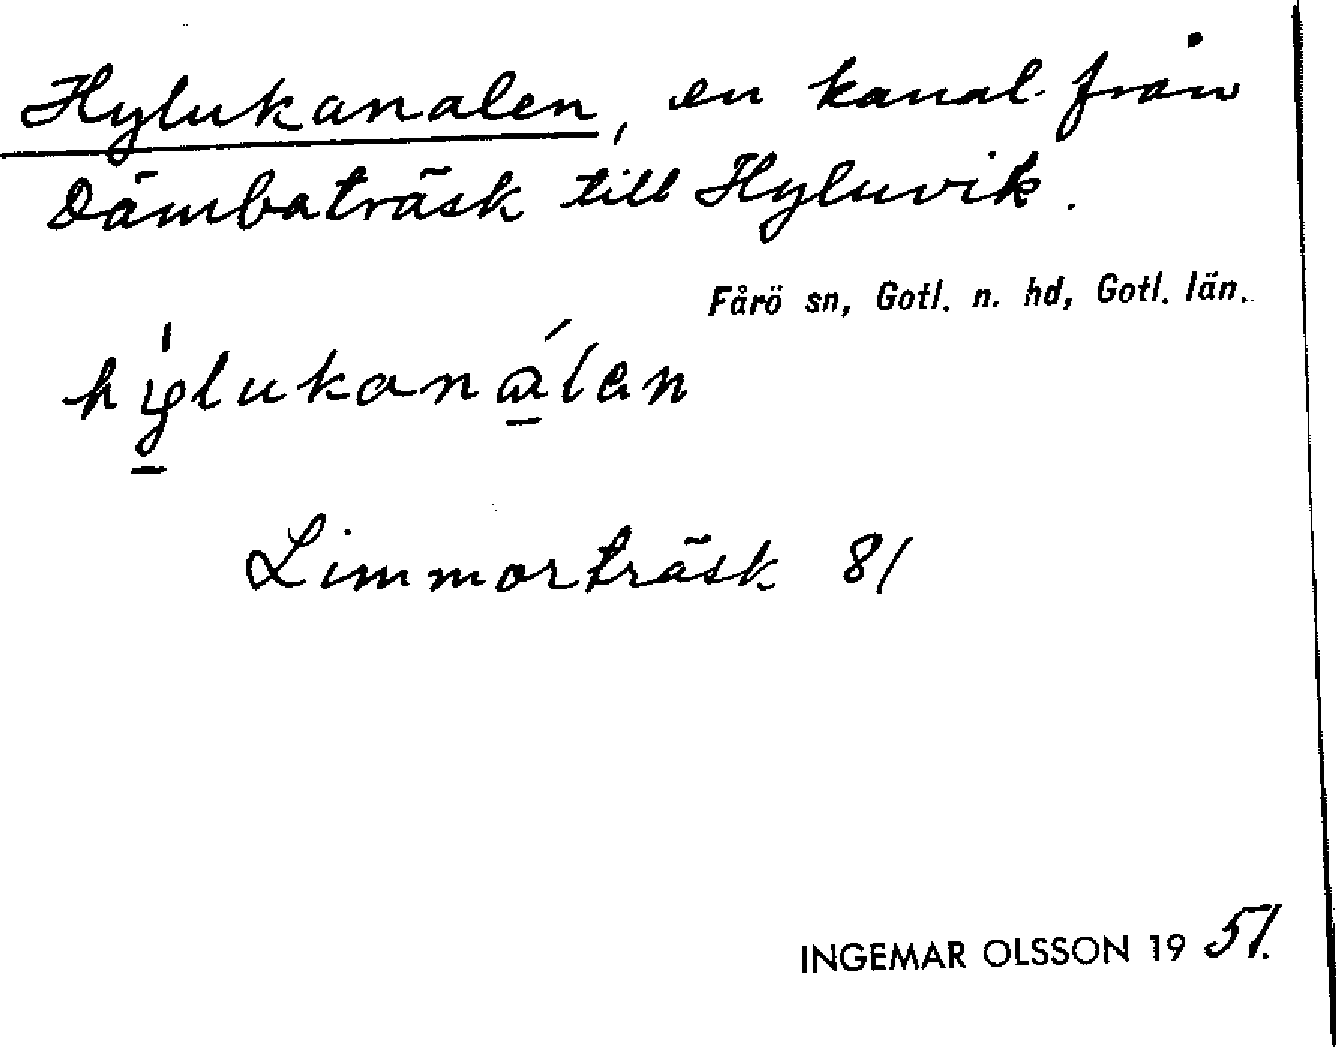 Hylukanalen, en kanal från
Dämbaträsk till Hyluvik.
Fårö sn, Gotl. n. hd, Gotl. län.
hy̱̍lukana̱̍len
Limmorträsk 8/
INGEMAR OLSSON 19 51.